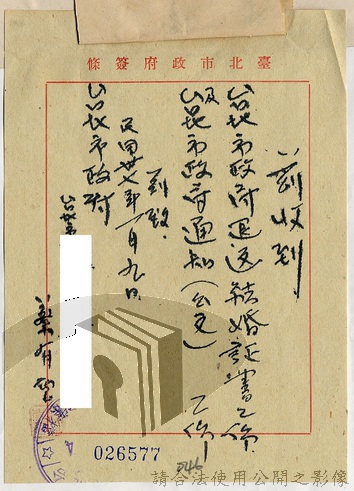 臺北市政府簽條
茲收到
台北市政府退还結婚証書乙份
及台北市政府通知(公文)乙份
此致
台北市政府
民国卅七年一月九日
026577
請合法使用公開之影像